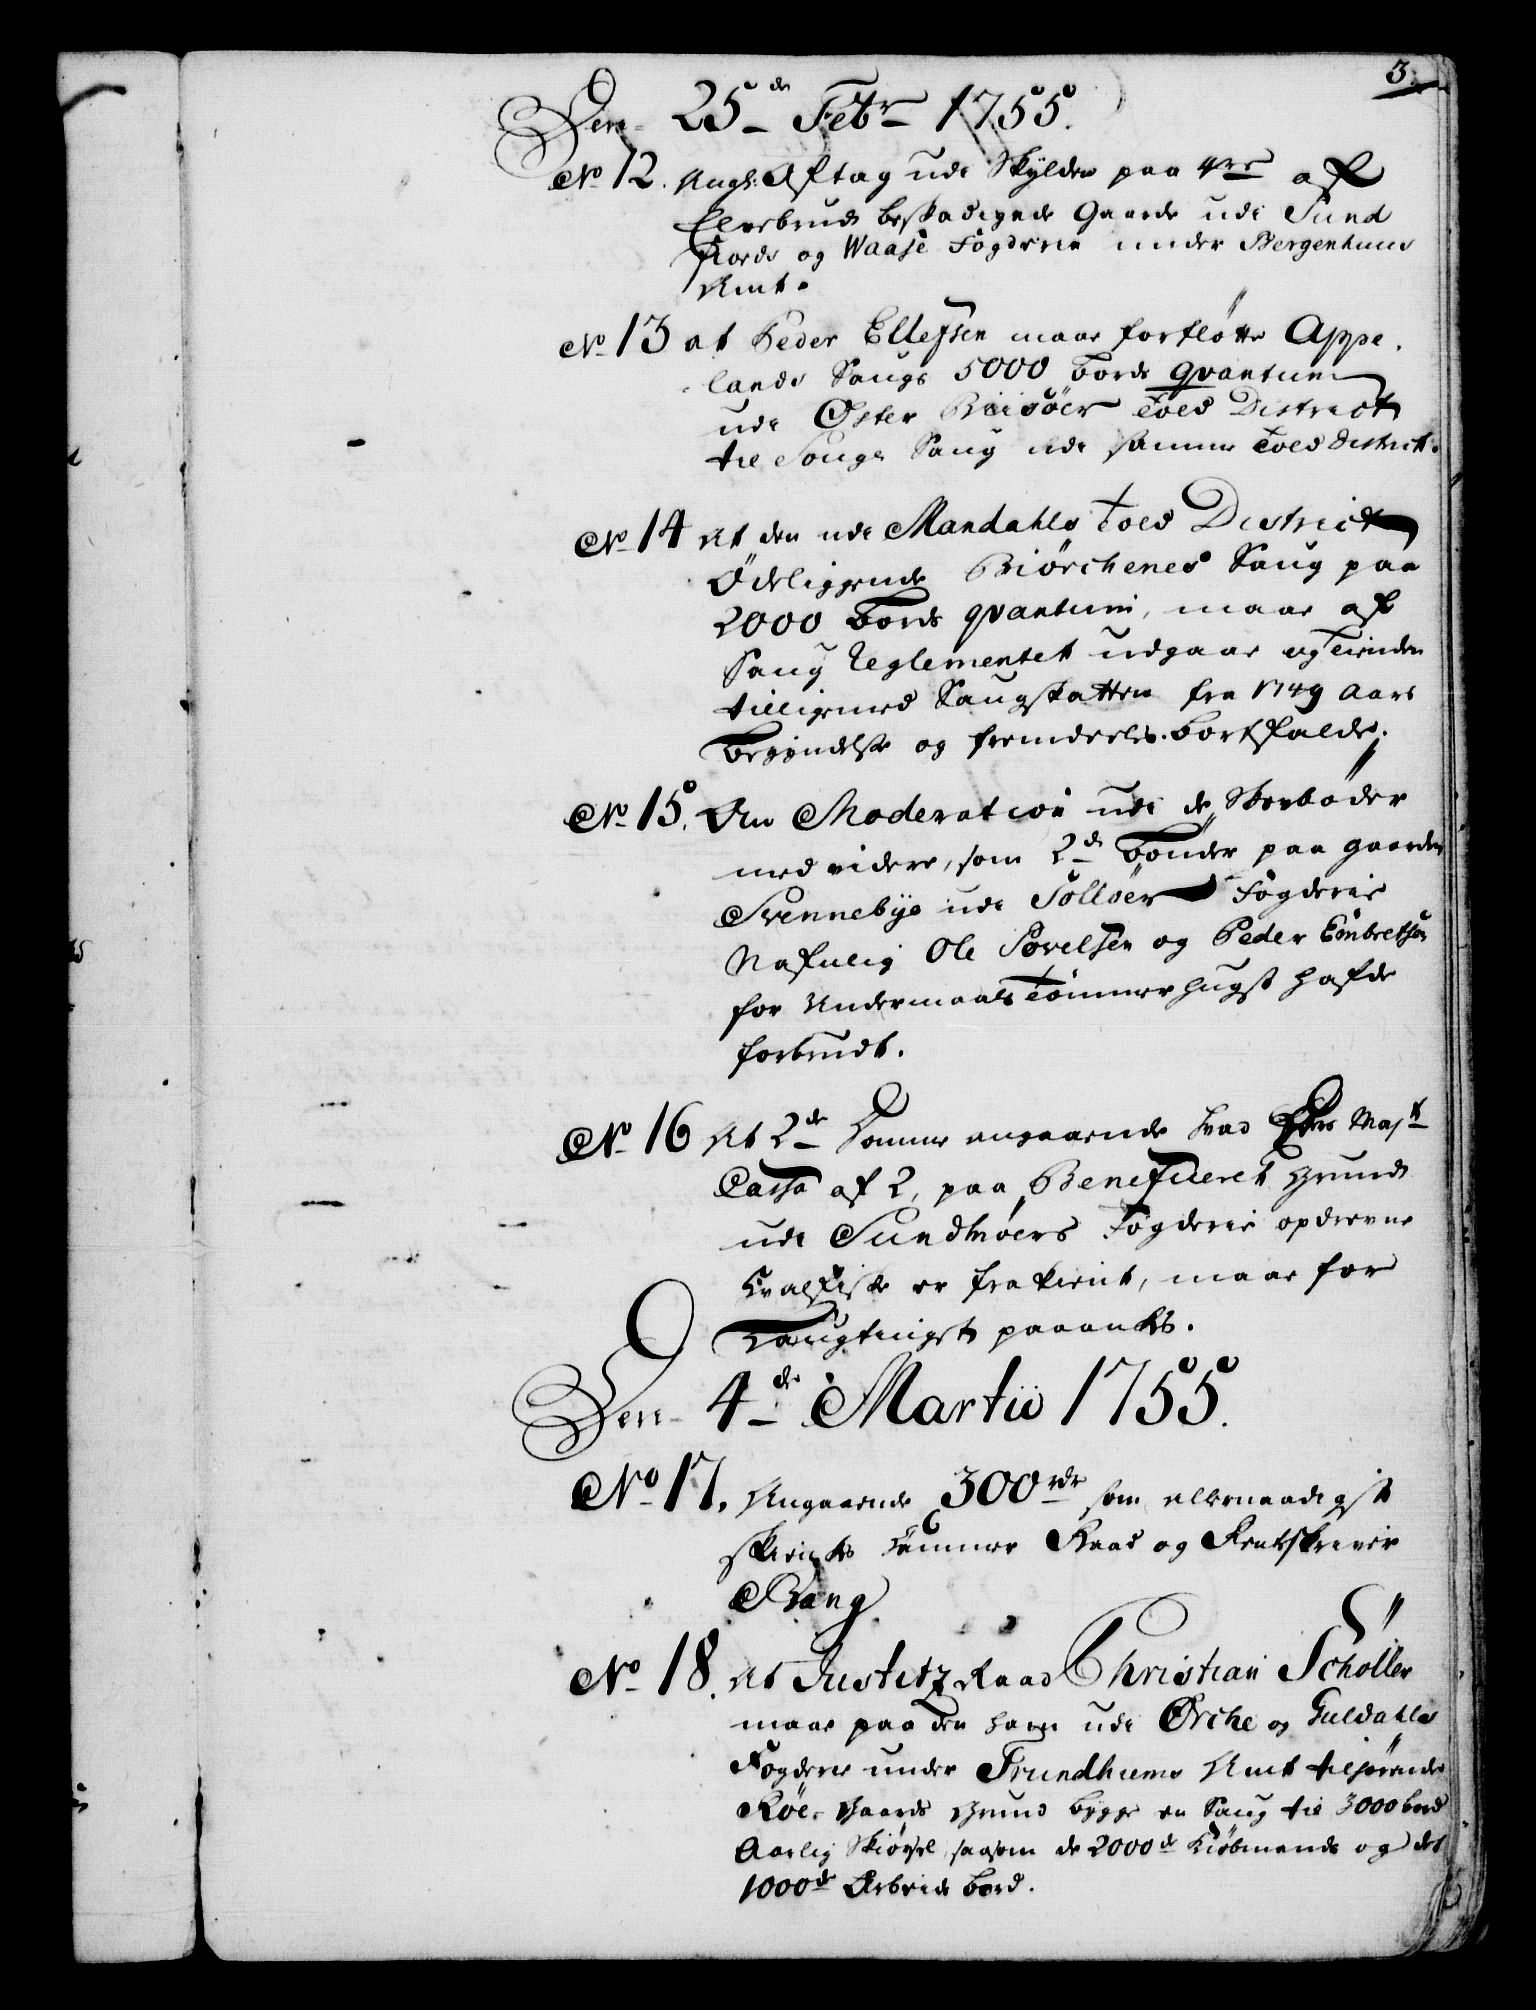 3.
Den 25de Febr 1755.
No 12. Angl: Aftag udi Skylden paa 4re af
Elvebrud beskadigede Gaarde udi Sund
fiords og Waase Fogderie under Bergenhuus
Amt.
No 13 at Peder Ellefsen maae forfløtte Appe,
lands Saugs 5000 bords qvantum
udi Øster Riisöers Told District
til Songe Saug udi samme Told district.
No 14 At den udi Mandahls Told District
Ödeliggende Biörchenes Saug paa
2000 bords qvantum, maae af
Saug Reglementet udgaae og Tienden
tilligemed Saugskatten fra 1749 Aars
begyndelse og fremdeeles bortfalde;
No 15. Om Moderation udi de Skovbøder
med videre, som 2de bönder paa gaarden
Svennebye udi Solløers Fogderie
Nafnlig Ole Povelsen og Peder Embretsøn
for Undermaals Tømmerhugst hafde
forbrudt.
No 16 At 2de Domme angaaende hvad Eders Majts
Cassa af 2, paa Beneficeret Grund
udi Sundmöers Fogderie opdrevne
Hvalfiske er frakient, maae for
Laugtinget paaankes.
Den 4de Martii 1755.
No 17. Angaaende 300rdr som allernaadigst
skienkes Kammer Raad og Rentskriver
Bang
No 18. At Justitz Raad Christian Schöller
maae paa den ham udi Ørche og Guldahls
Fogderie under Trundhiems Amt tilhørende
Röe- Gaards Grund bygge en Saug til 3000 bord
Aarlig Skiørsel, saasom de 2000de Kiøbmands og det
1000de Ørbeids bord.